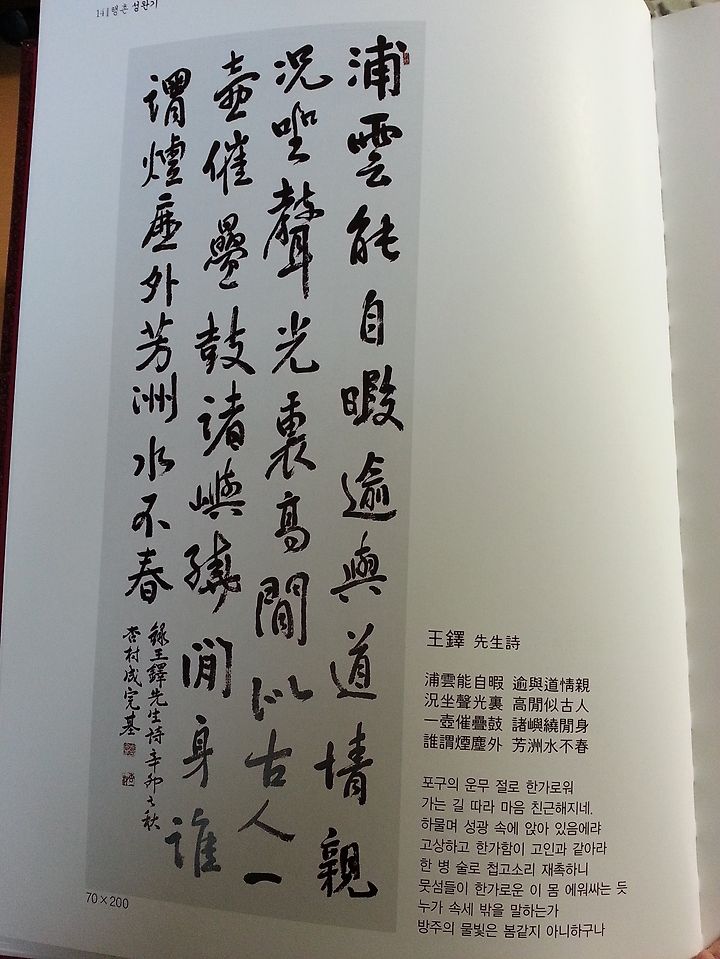 14 ‖ 행촌 성완기
浦雲能自暇逾與道情親
況坐聲光裏高閒似古人一
壺催疊鼓諸嶼繞閒身誰
謂煙塵外芳洲水不春
錄王鐸先生詩辛卯之秋
杏村成完基
70×200
王鐸 先生詩
浦雲能自暇 逾與道情親
況坐聲光裏 高閒似古人
一壺催疊鼓 諸嶼繞閒身
誰謂煙塵外 芳洲水不春
포구의 운무 절로 한가로워
가는 길 따라 마음 친근해지네.
하물며 성광 속에 앉아 있음에랴
고상하고 한가함이 고인과 같아라
한 병 술로 첩고소리 재촉하니
뭇섬들이 한가로운 이 몸 에워싸는 듯
누가 속세 밖을 말하는가
방주의 물빛은 봄같지 아니하구나